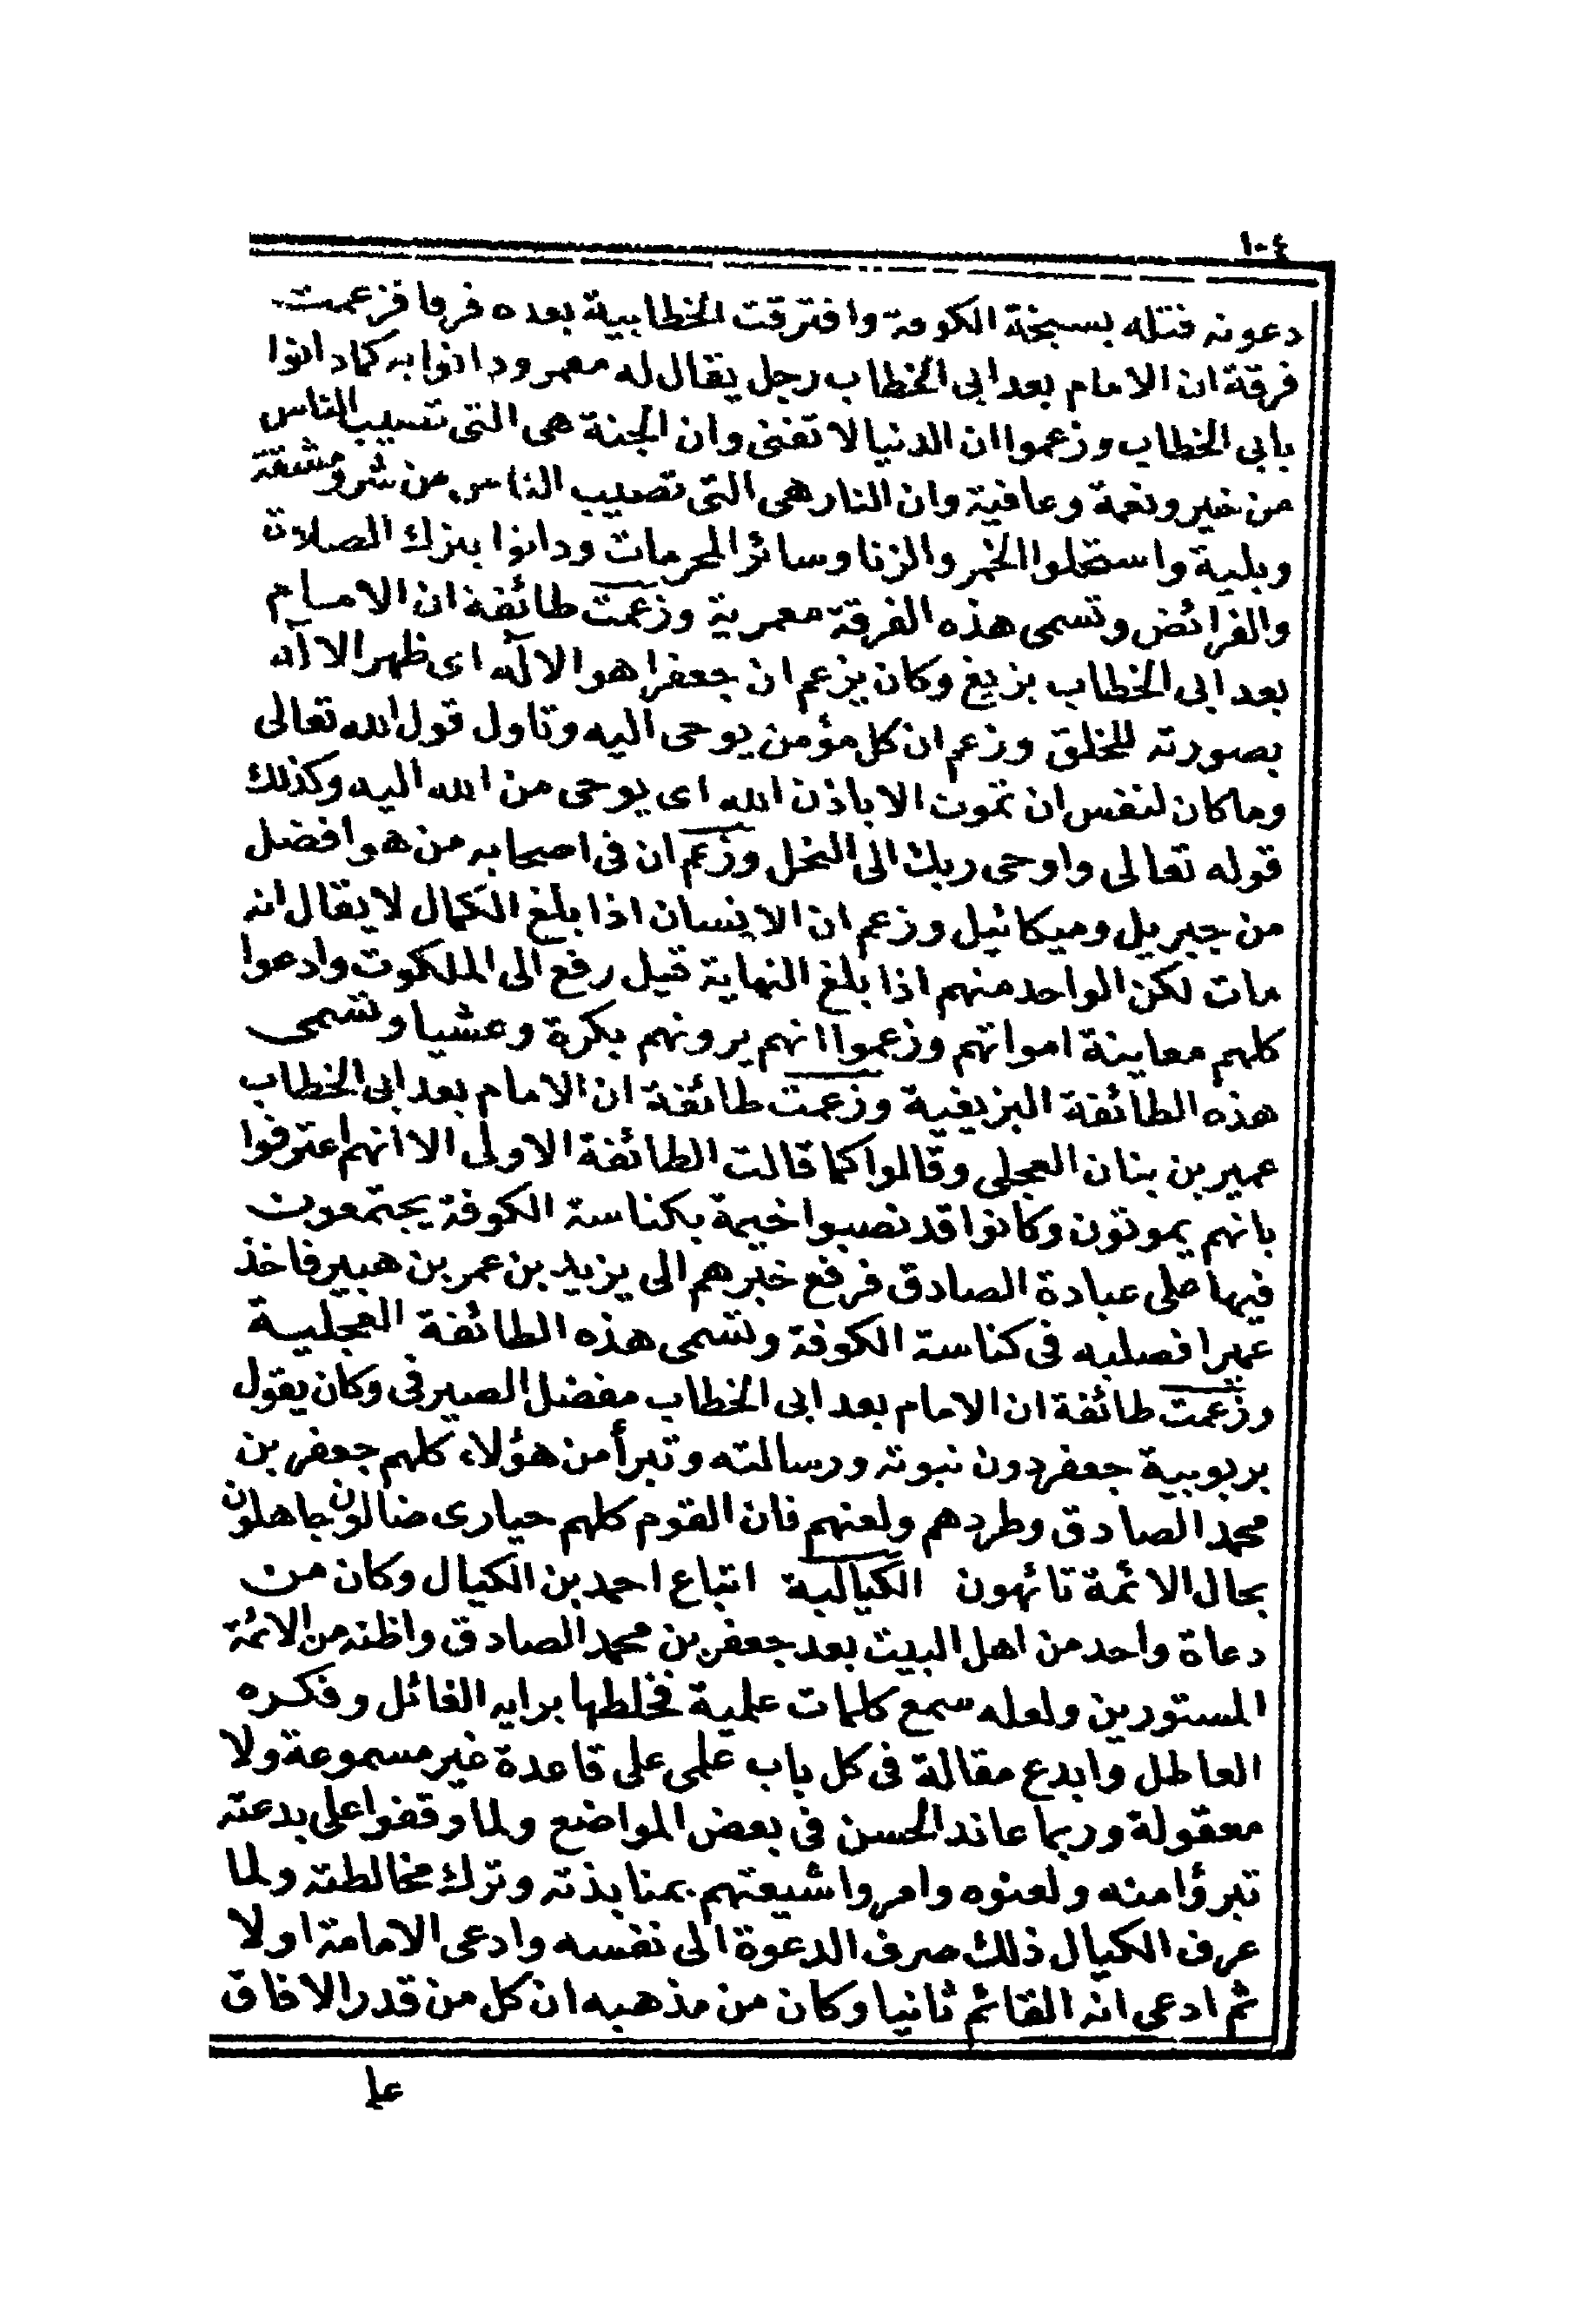 ١٠٤
دعوته قتله بسبخة الكوفة وافترقت الخطابية بعده فرقا فزعمت
فرقة ان الامام بعد ابى الخطاب رجل يقال له معمر ودانوا به كما دانوا
بابى الخطاب وزعموا ان الدنيا لا تفنى وان الجنة هى التى تصيب الناس
من خير ونعمة وعافية وان النار هى التى تصيب الناس من شر ومشقة
وبلية واستحلوا الخمر والزنا وسائر المحرمات ودانوا بترك الصلاة
والفرائض وتسمى هذه الفرقة معمرية وزعمت طائفة ان الامام
بعد ابى الخطاب بزيغ وكان يزعم ان جعفرا هو الاله اى ظهر الاله
بصورته للخلق وزعم ان كل مؤمن يوحى اليه وتاول قول الله تعالى
وما كان لنفس ان تموت الا باذن الله اى يوحى من الله اليه وكذلك
قوله تعالى واوحى ربك الى النحل وزعم ان فى اصحابه من هو افضل
من جبريل وميكائيل وزعم ان الانسان اذا بلغ الكمال لا يقال انه
مات لكن الواحد منهم اذا بلغ النهاية قيل رفع الى الملكوت وادعوا
كلهم معاينة امواتهم وزعموا انهم يرونهم بكرة وعشيا وتسمى
هذه الطائفة البزيغية وزعمت طائفة ان الامام بعد ابى الخطاب
عمير بن بنان العجلى وقالوا كما قالت الطائفة الاولى الا انهم اعترفوا
بانهم يموتون وكانوا قد نصبوا خيمة بكناسة الكوفة يجتمعون
فيها على عبادة الصادق فرفع خبرهم الى يزيد بن عمر بن هبير فاخذ
عميرا فصلبه فى كناسة الكوفة وتسمى هذه الطائفة العجلية
وزعمت طائفة ان الامام بعد ابى الخطاب مفضل الصيرفى وكان يقول
بربوبية جعفر دون نبوته ورسالته وتبرأ من هؤلاء كلهم جعفر بن
محمد الصادق وطردهم ولعنهم فان القوم كلهم حيارى ضالون جاهلون
بحال الائمة تائهون الكيالية اتباع احمد بن الكيال وكان من
دعاة واحد من اهل البيت بعد جعفر بن محمد الصادق واظنه من الائمة
المستورين ولعله سمع كلمات علمية فخلطها برايه الفائل وفكره
العاطل وابدع مقالة فى كل باب علمى على قاعدة غير مسموعة ولا
معقولة وربما عاند الحسن فى بعض المواضع ولما وقفوا على بدعته
تبرؤا منه ولعنوه وامروا شيعتهم بمنابذته وترك مخالطته ولما
عرف الكيال ذلك صرف الدعوة الى نفسه وادعى الامامة اولا
ثم ادعى انه القائم ثانيا وكان من مذهبه ان كل من قدر الافاق
على